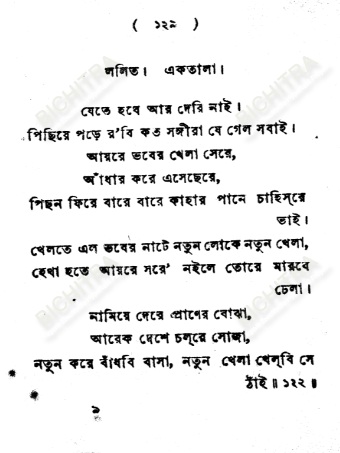 ( ১২৯ )
ললিত। একতালা।
যেতে হবে আর দেরি নাই।
পিছিয়ে পড়ে র'বি কত সঙ্গীরা যে গেল সবাই।
আয়রে ভবের খেলা সেরে,
আঁধার করে এসেছেরে,
পিছন ফিরে বারে বারে কাহার পানে চাহিস্‌রে
ভাই।
খেলতে এল ভবের নাটে নতুন লোকে নতুন খেলা,
হেথা হতে আয়রে সরে' নইলে তোরে মারবে
ঢেলা।
নামিয়ে দেরে প্রাণের বোঝা,
আরেক দেশে চল্‌রে সোজা,
নতুন করে বাঁধবি বাসা, নতুন খেলা খেল্‌বি সে
ঠাঁই॥ ১২২॥
৯
BICHITRA
BICHITRA
BICHITRA
BICHITRA